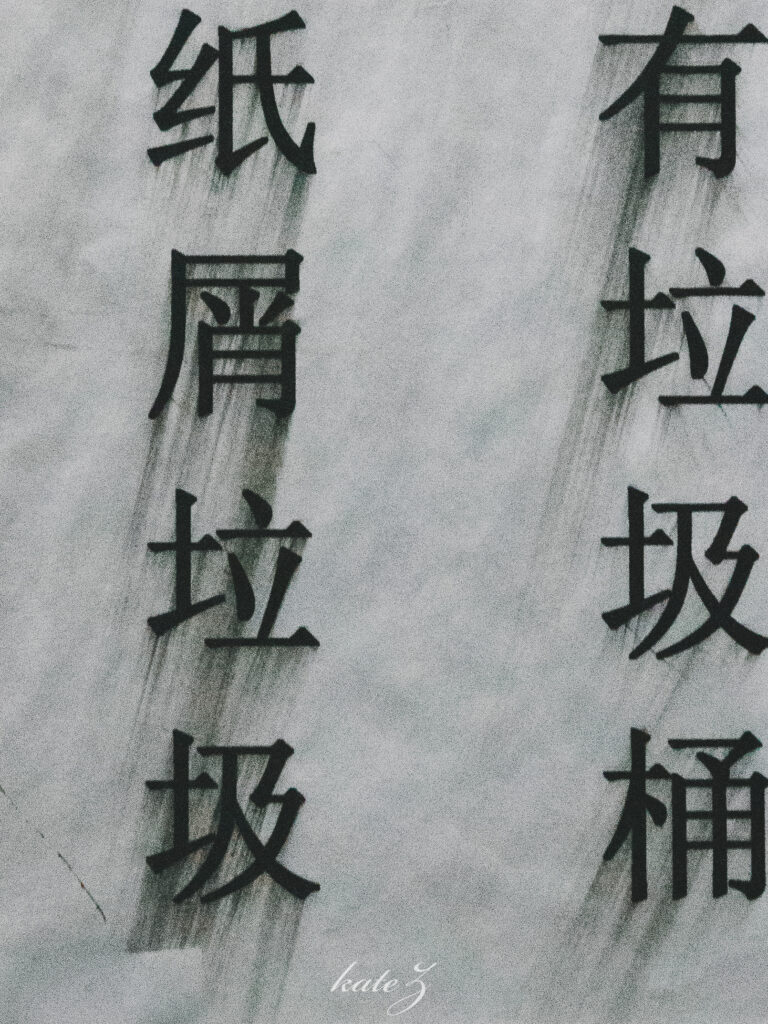 纸屑垃圾
有垃圾桶
kate Z